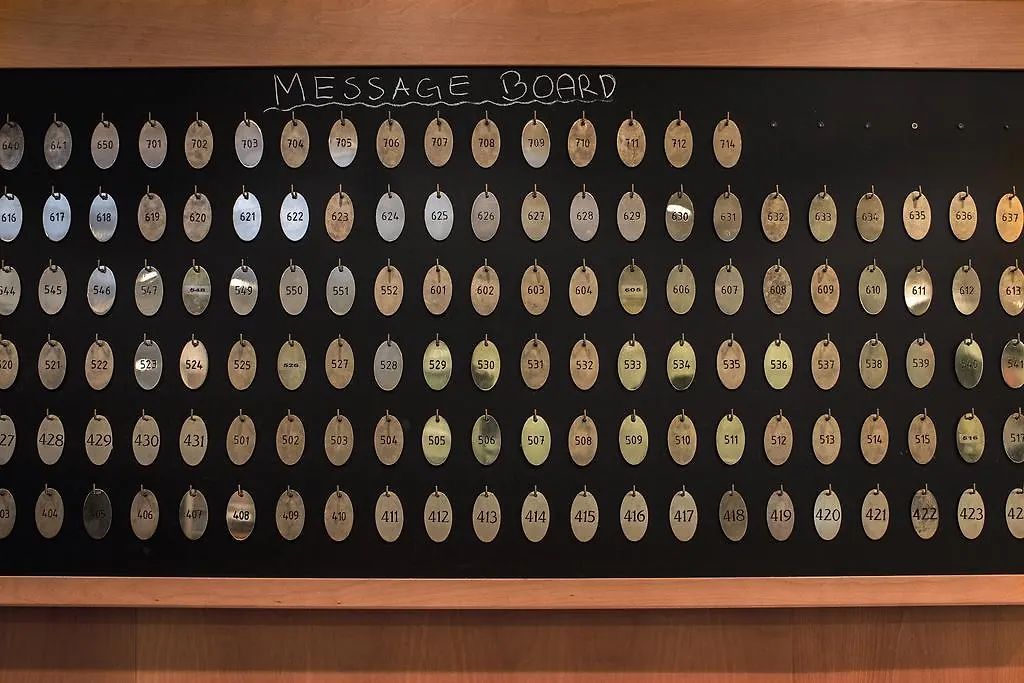 MESSAGE BOARD
640 641 650 701 702 703 704 705 706 707 708 709 710 711 712 714
616 617 618 619 620 621 622 623 624 625 626 627 628 629 630 631 632 633 634 635 636 637
545 546 547 548 549 550 551 552 601 602 603 604 605 606 607 608 609 610 611 612 613
521 522 523 524 525 526 527 528 529 530 531 532 533 534 535 536 537 538 539 540 541
428 429 430 431 501 502 503 504 505 506 507 508 509 510 511 512 513 514 515 516 517
404 405 406 407 408 409 410 411 412 413 414 415 416 417 418 419 420 421 422 423